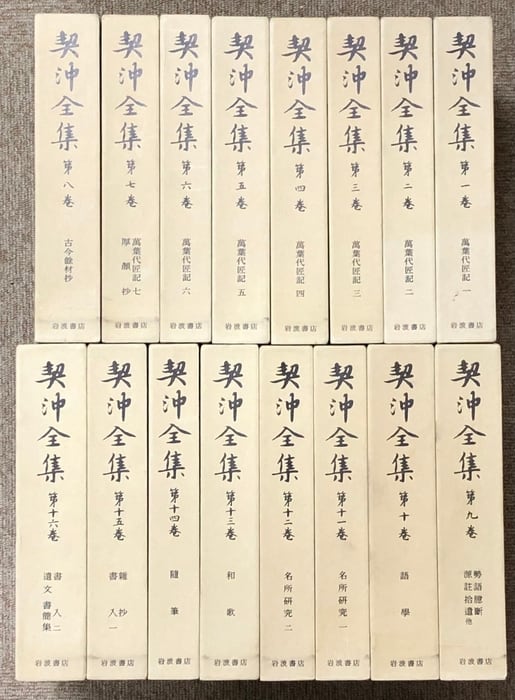 契沖全集 第一巻
萬葉代匠記 一
岩波書店
契沖全集 第二巻
萬葉代匠記 二
岩波書店
契沖全集 第三巻
萬葉代匠記 三
岩波書店
契沖全集 第四巻
萬葉代匠記 四
岩波書店
契沖全集 第五巻
萬葉代匠記 五
岩波書店
契沖全集 第六巻
萬葉代匠記 六
岩波書店
契沖全集 第七巻
萬葉代匠記 七
厚顔抄
岩波書店
契沖全集 第八巻
古今餘材抄
岩波書店
契沖全集 第九巻
勢語臆斷
源註拾遺 他
岩波書店
契沖全集 第十巻
語學
岩波書店
契沖全集 第十一巻
名所研究 一
岩波書店
契沖全集 第十二巻
名所研究 二
岩波書店
契沖全集 第十三巻
和歌
岩波書店
契沖全集 第十四巻
隨筆
岩波書店
契沖全集 第十五巻
雜抄
書入 一
岩波書店
契沖全集 第十六巻
書入 二
遺文 書簡集
岩波書店